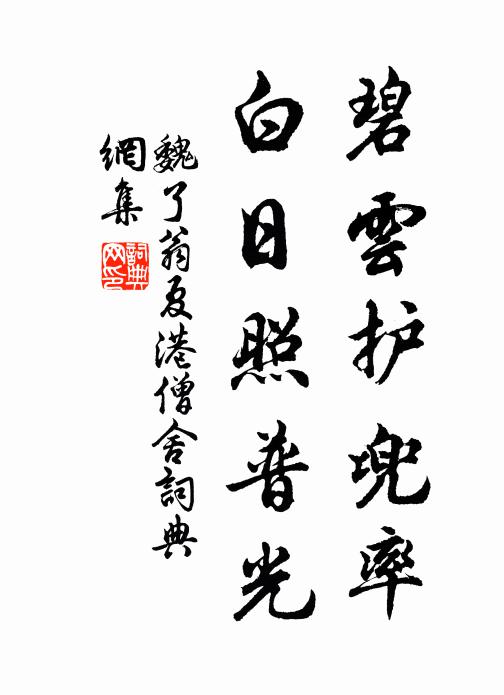 碧雲护兜率
白日照普光
魏了翁夏港僧舍詞典
網集
詞典
网印